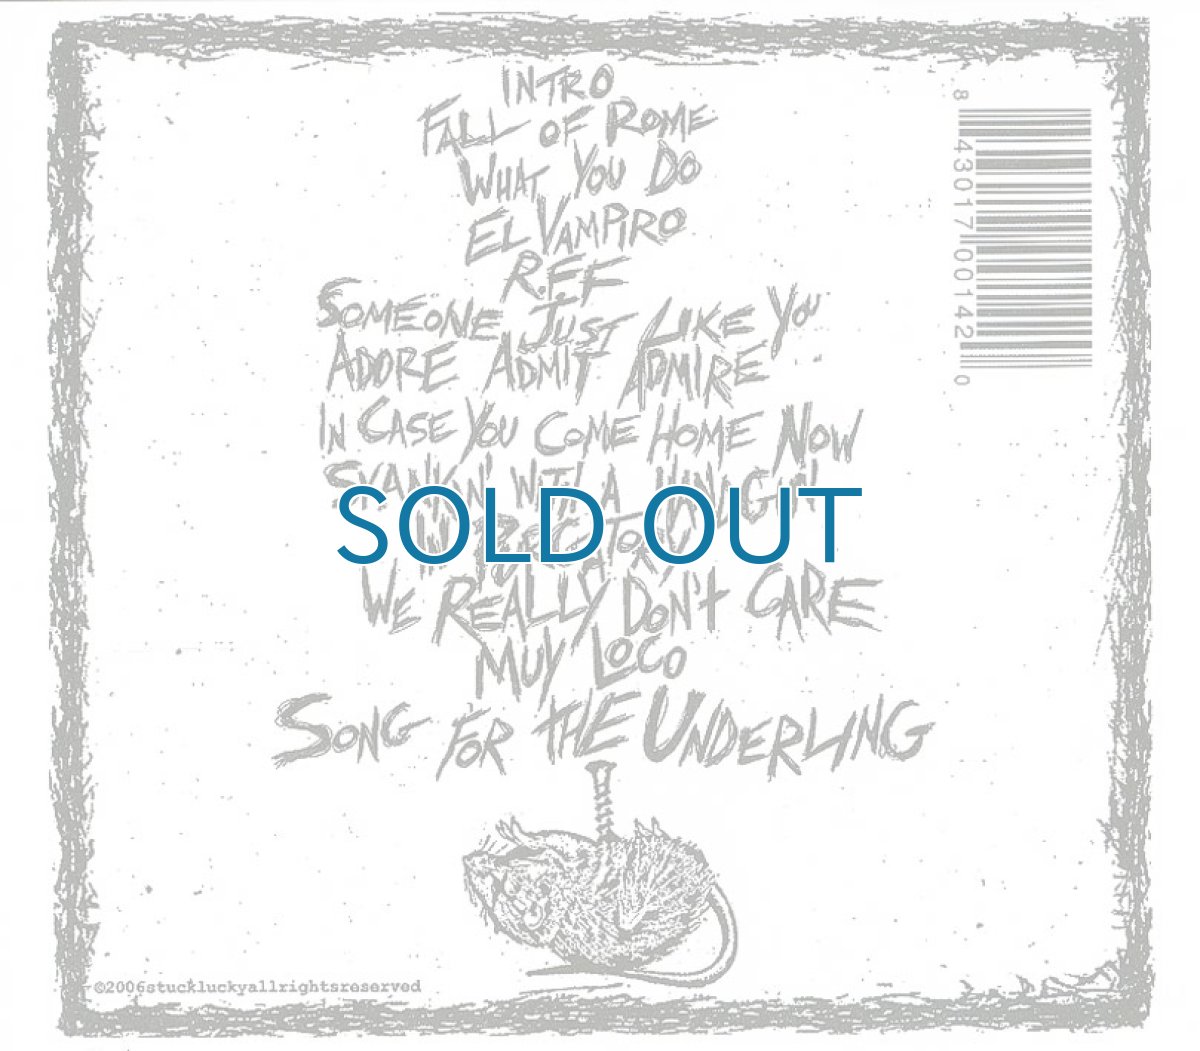 INTRO
FALL OF ROME
WHAT YOU DO
EL VAMPIRO
R.F.F
SOMEONE JUST LIKE YOU
ADORE ADMIT ADMIRE
IN CASE YOU COME HOME NOW
SKANKN' WITH A
SOLD OUT
IN
WE REALLY DON'T CARE
MUY LOCO
SONG FOR THE UNDERLING
8 43017 00142 0
©2006stuckluckyallrightsreserved